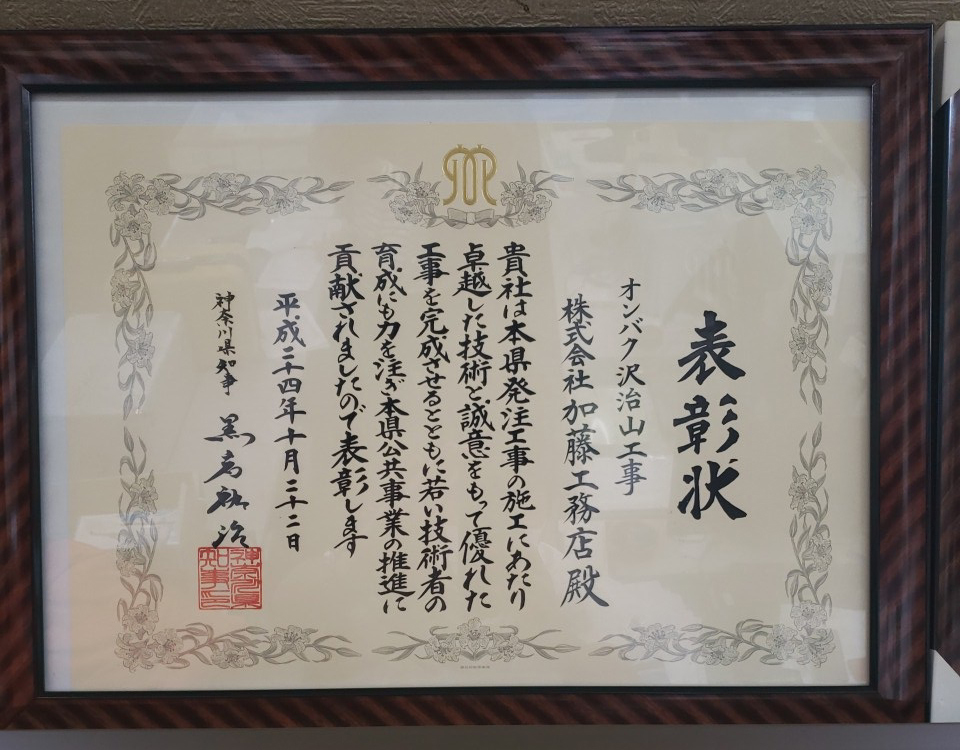 表彰状
オンバク沢治山工事
株式会社 加藤工務店 殿
貴社は本県発注工事の施工にあたり
卓越した技術と誠意をもって優れた
工事を完成させるとともに若い技術者の
育成にも力を注ぎ本県公共事業の推進に
貢献されましたので表彰します
平成二十四年十月二十二日
神奈川県知事 黒岩祐治